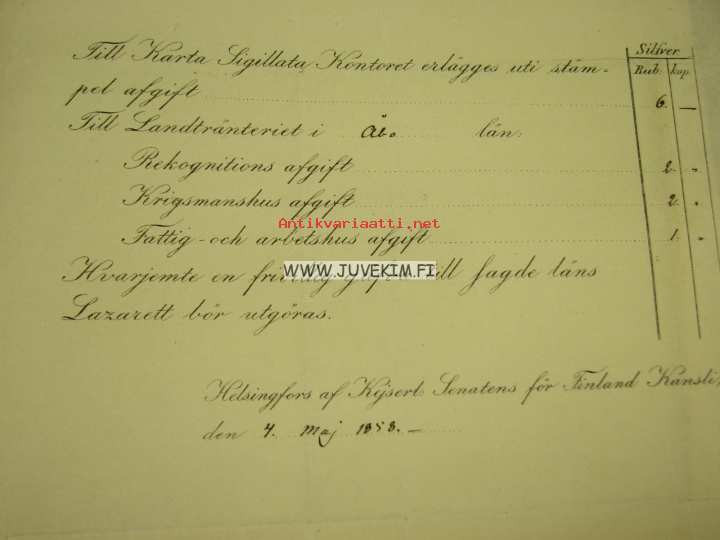 Silfver
Till Karta Sigillata Kontoret erlägges uti stäm-
Rub. kop.
pel afgift 6. —
Till Landtränteriet i Åbo län:
Rekognitions afgift 2. "
Krigsmanshus afgift 2. "
Antikvariaatti.net
Fattig- och arbetshus afgift 1. "
WWW.JUVEKIM.FI
Hvarjemte en frivillig gåfva till sagde läns
Lazarett bör utgöras.
Helsingfors af Kejserl. Senatens för Finland Kansli,
den 4. Maj 1858. —